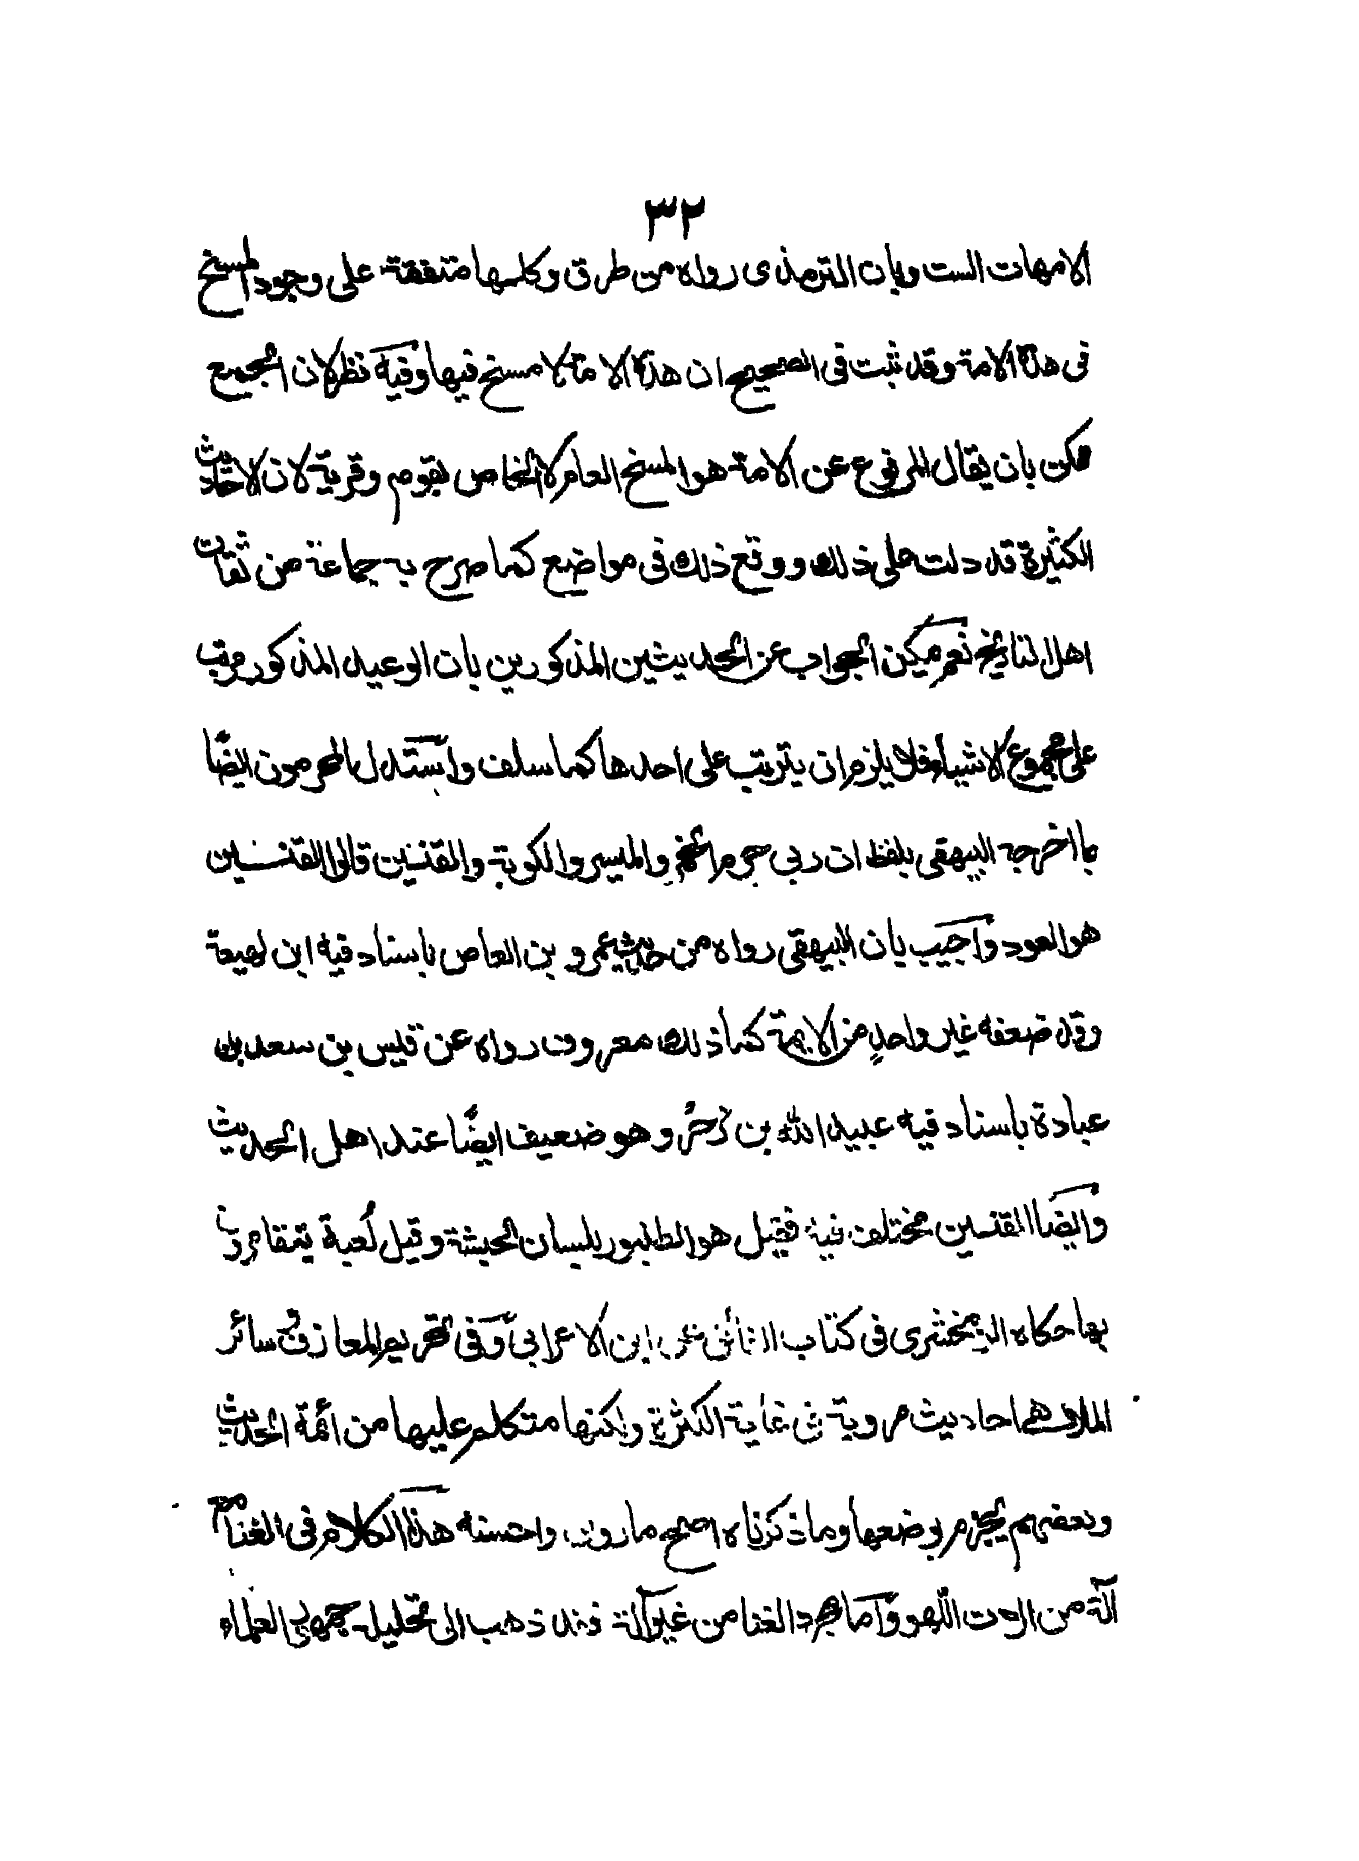 ٣٢
الامهات الست وبان الترمذى رواه من طرق وكلها متفقة على وجود المسخ
فى هذه الامة وقد ثبت فى الصحيح ان هذه الامة لا مسخ فيها وفيه نظر لان الجميع
ممكن بان يقال المرفوع عن الامة هو المسخ العام لا الخاص بقوم وقرية لان الاحاديث
الكثيرة قد دلت على ذلك ووقع ذلك فى مواضع كما صرح به جماعة من ثقات
اهل التاريخ نعم يمكن الجواب عن الحديثين المذكورين بان الوعيد المذكور مرتب
على مجموع الاشياء فلا يلزم ان يترتب على احدها كما سلف واستدل المحرمون ايضًا
بما اخرجه البيهقى بلفظ ان ربى حرم الخمر والميسر والكوبة والقنين قالوا القنين
هو العود واجيب بان البيهقى رواه من حديث عمرو بن العاص باسناد فيه ابن لهيعة
وقد ضعفه غير واحدٍ من الايمة كما ذلك معروف رواه عن قيس بن سعد بن
عبادة باسناد فيه عبيد الله بن زحر وهو ضعيف ايضًا عند اهل الحديث
وايضا القنين مختلف فيه فقيل هو الطنبور بلسان الحبشة وقيل لُعبة يتقامرون
بها حكاه الزمخشرى فى كتاب الفائق عن ابن الاعرابىّ وفى تحريم المعازف وسائر
الملاهى احاديث مروية فى غاية الكثرة ولكنها متكلم عليها من ائمة الحديث
وبعضهم يجزم بوضعها وما ذكرناه اصح ما روى واحسنه هذا الكلام فى الغنا مع
آلة من الات اللهو وأما مجرد الغنا من غير آلة فقد ذهب الى تحليله جمهور العلماء